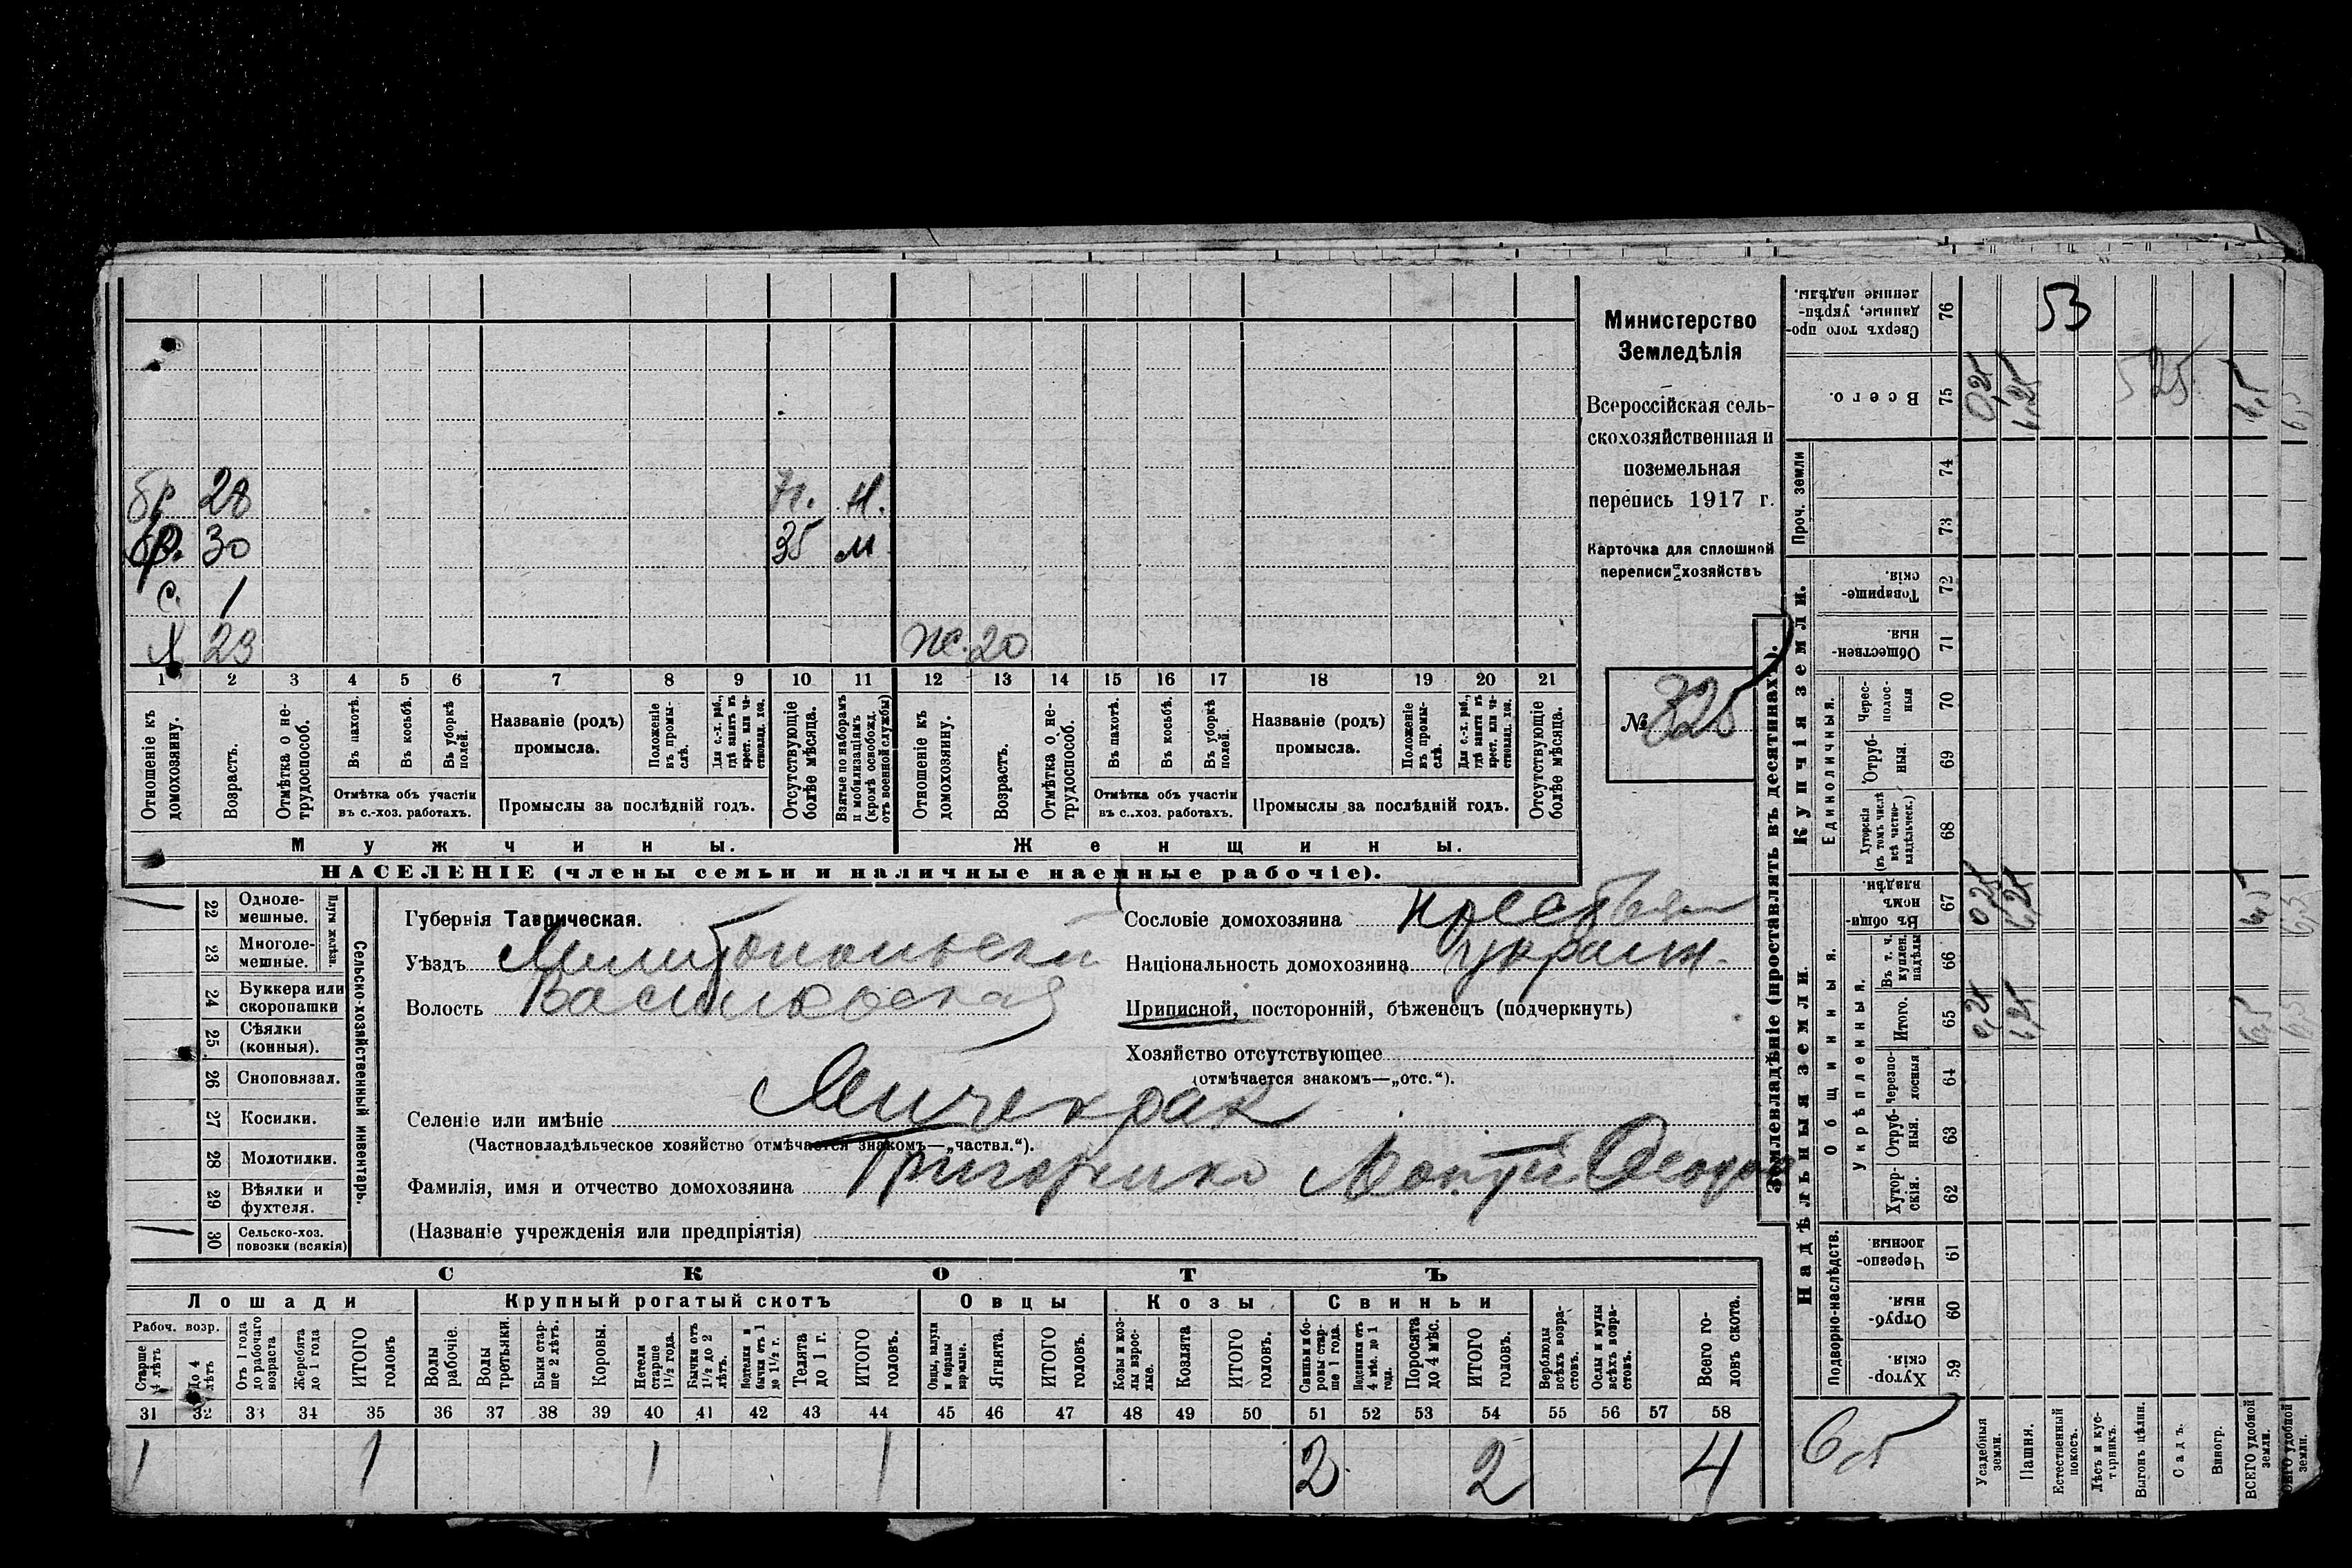 бр 28 Н.
бр. 30 35 м
с. 1
Х 23 ж. 20
1 2 3 4 5 6 7 8 9 10 11 12 13 14 15 16 17 18 19 20 21
Отношеніе къ домохозяину.
Возрастъ.
Отмѣтка о не-трудоспособ.
Въ пахотѣ.
Въ косьбѣ.
Въ уборкѣ полей.
Отмѣтка объ участіи
въ с.-хоз. работахъ.
Названіе (родъ)
промысла.
Положеніе въ промы-слѣ.
Для с.-х. раб., гдѣ занятъ въ крест. или ча-стновлад. хоз.
Промыслы за послѣдній годъ.
Отсутствующіе болѣе мѣсяца.
Взятые по наборамъ и мобилизаціямъ (кромѣ освобожд. отъ военной службы)
Отношеніе къ домохозяину.
Возрастъ.
Отмѣтка о не-трудоспособ.
Въ пахотѣ.
Въ косьбѣ.
Въ уборкѣ полей.
Отмѣтка объ участіи
въ с.-хоз. работахъ.
Названіе (родъ)
промысла.
Положеніе въ промы-слѣ.
Для с.-х. раб., гдѣ занята въ крест. или ча-стновлад. хоз.
Промыслы за послѣдній годъ.
Отсутствующіе болѣе мѣсяца.
Мужчины. Женщины.
НАСЕЛЕНІЕ (члены семьи и наличные наемные рабочіе).
Министерство
Земледѣлія
Всероссійская сель-
скохозяйственная и
поземельная
перепись 1917 г.
Карточка для сплошной
переписи хозяйствъ
№ 325
Сельско-хозяйственный инвентарь.
Плуги желѣзн.
22 Одноле-мешные.
23 Многоле-мешные.
24 Буккера или скоропашки
25 Сѣялки (конныя).
26 Сноповязал.
27 Косилки.
28 Молотилки.
29 Вѣялки и фухтеля.
30 Сельско-хоз. повозки (всякія)
Губернія Таврическая.
Уѣздъ Мелитопольскій
Волость Васильевская
Селеніе или имѣніе
(Частновладѣльческое хозяйство отмѣчается знакомъ—„частвл.“).
Фамилія, имя и отчество домохозяина
(Названіе учрежденія или предпріятія)
Сословіе домохозяина крестьян
Національность домохозяина украин.
Приписной, посторонній, бѣженецъ (подчеркнуть)
Хозяйство отсутствующее
(отмѣчается знакомъ—„отс.“).
СКОТЪ
Лошади Крупный рогатый скотъ Овцы Козы Свиньи
Рабоч. возр.
Старше 4 лѣтъ
До 4 лѣтъ
Отъ 1 года до рабочаго возраста
Жеребята до 1 года
ИТОГО головъ
Волы рабочіе.
Волы третьяки.
Быки стар-ше 2 лѣтъ.
Коровы.
Нетели старше 1½ года.
Бычки отъ 1½ до 2 лѣтъ.
Подтелки и бычки отъ 1 до 1½ г.
Телята до 1 г.
ИТОГО головъ.
Овцы, валухи и бараны взрослые.
Ягнята.
ИТОГО головъ.
Козы и коз-лы взрос-лые.
Козлята
ИТОГО головъ.
Свиньи и бо-ровы стар-ше 1 года.
Подсвинки отъ 4 мѣс. до 1 года.
Поросята до 4 мѣс.
ИТОГО головъ.
Верблюды всѣхъ возра-стовъ.
Ослы и мулы всѣхъ возра-стовъ.
Всего го-ловъ скота.
31 32 33 34 35 36 37 38 39 40 41 42 43 44 45 46 47 48 49 50 51 52 53 54 55 56 57 58
1 1 1 1 2 2 4
Землевладѣніе (проставлять въ десятинахъ).
Надѣльныя земли. Купчія земли. Проч. земли
Подворно-наслѣдств.
Общинныя.
Укрѣпленныя.
Единоличныя.
59 Хутор-скія.
60 Отруб-ныя
61 Черезпо-лосныя.
62 Хутор-скія.
63 Отруб-ныя.
64 Черезпо-лосныя
65 Итого.
66 Въ т. ч. куплен. надѣлы
67 Въ общин-номъ владѣн.
68 Хуторскія (въ томъ числѣ всѣ частно-владѣльческ.)
69 Отруб-ныя.
70 Черес-полос-ныя
71 Обществен-ныя.
72 Товарище-скія.
73
74
75 Всего.
76 Сверхъ того про-данные, укрѣп-ленные надѣлы.
Усадебныя земли. 0,25 0,25 0,25
Пашня. 6,25 6,25 6,25
Естественный покосъ.
Лѣсъ и кус-тарникъ.
Выгонъ цѣлин.
Садъ.
Виногр.
ВСЕГО удобной земли. 6,5 6,5 6,5
53
525